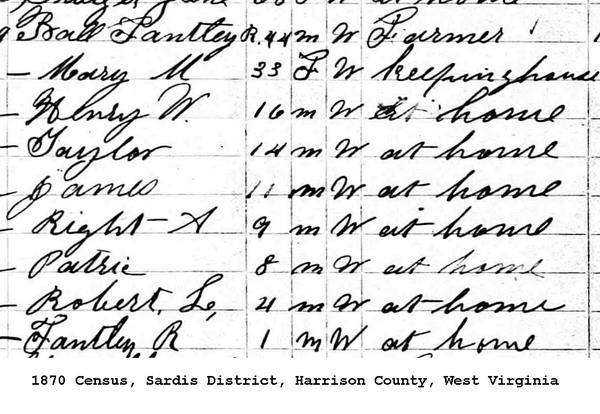 at home
Ball Fantley R. 44 m W Farmer
— Mary M 33 F W Keeping house
— Henry W. 16 m W At home
— Taylor 14 m W at home
— James 11 m W at home
— Right A 9 m W at home
— Patric 8 m W at home
— Robert. Le, 4 m W at home
— Fantley R 1 m W at home
1870 Census, Sardis District, Harrison County, West Virginia